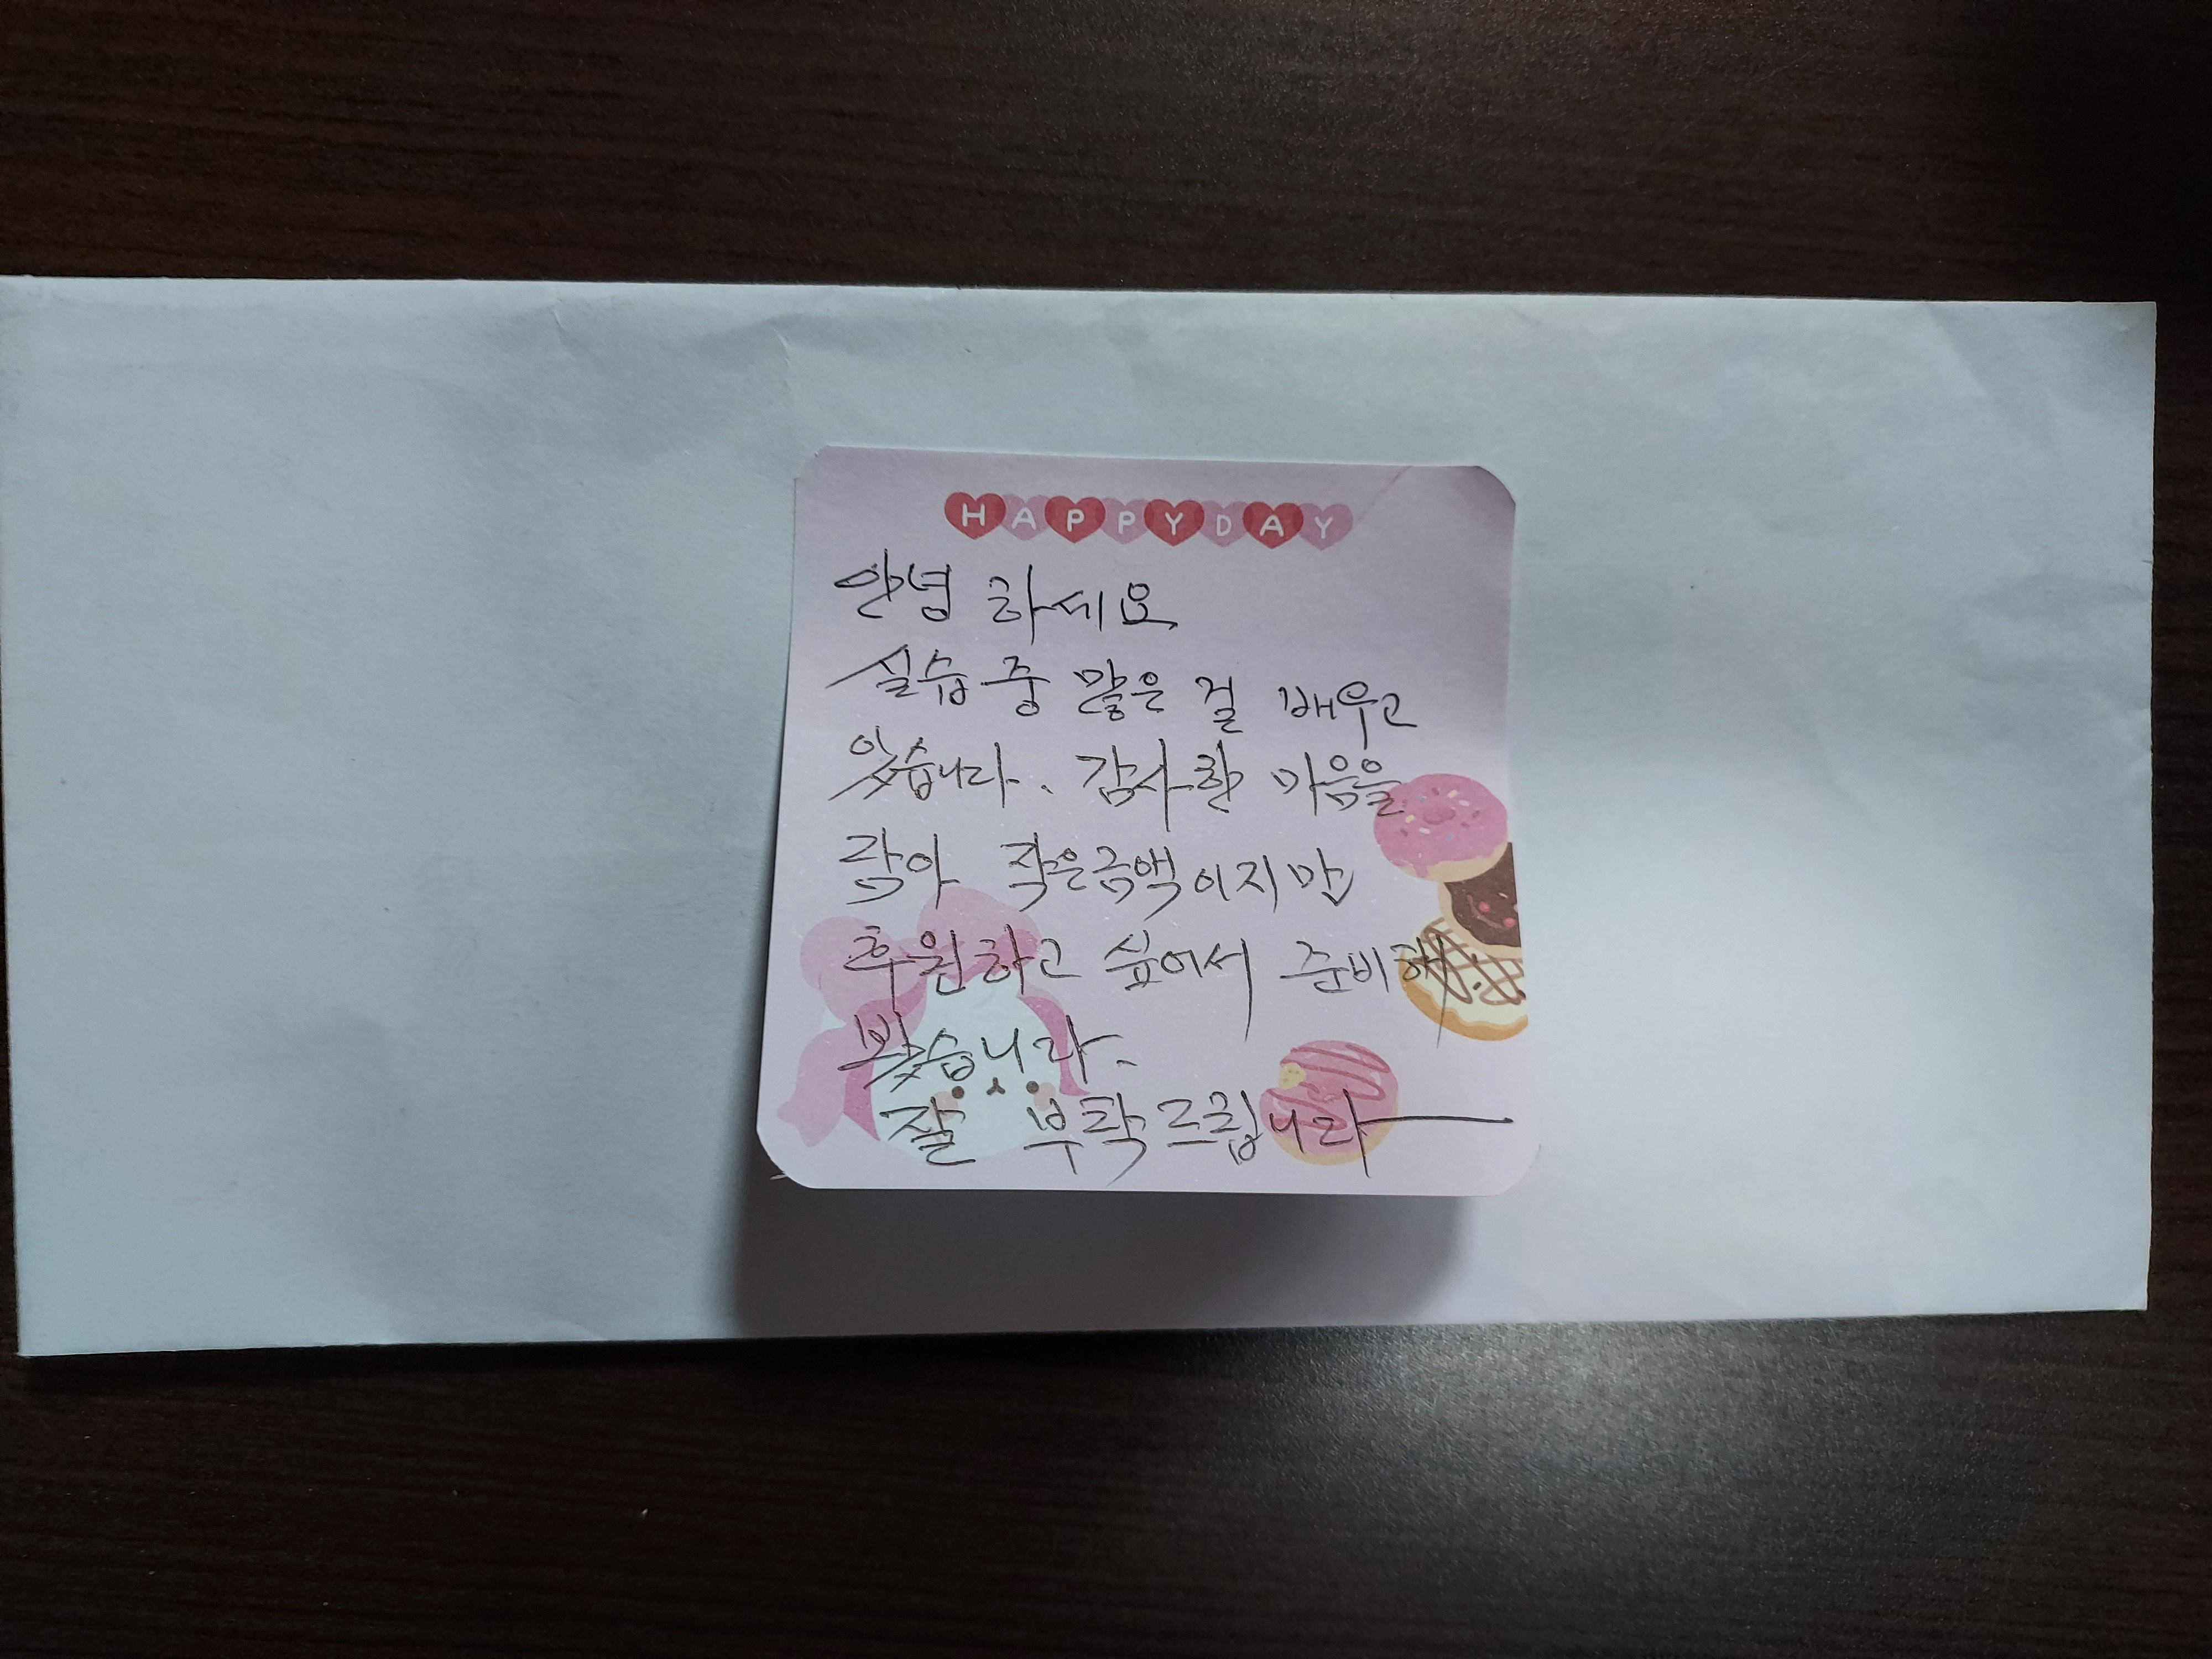 HAPPYDAY
안녕 하세요
실습 중 많은 걸 배우고
있습니다. 감사한 마음을
담아 작은금액이지만
후원하고 싶어서 준비해
봤습니다.
잘 부탁드립니다